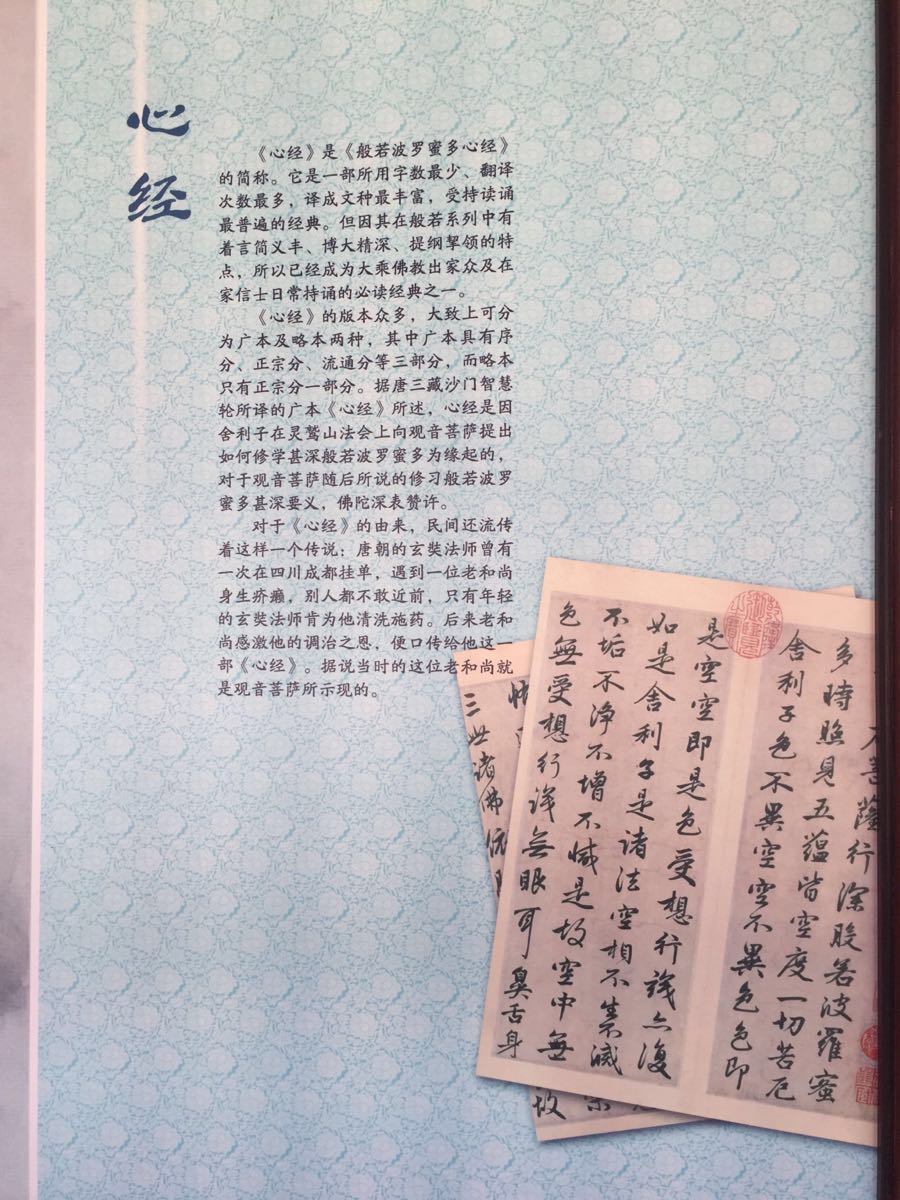 心经
《心经》是《般若波罗蜜多心经》
的简称。它是一部所用字数最少、翻译
次数最多，译成文种最丰富，受持读诵
最普遍的经典。但因其在般若系列中有
着言简义丰、博大精深、提纲挈领的特
点，所以已经成为大乘佛教出家众及在
家信士日常持诵的必读经典之一。
《心经》的版本众多，大致上可分
为广本及略本两种，其中广本具有序
分、正宗分、流通分等三部分，而略本
只有正宗分一部分。据唐三藏沙门智慧
轮所译的广本《心经》所述，心经是因
舍利子在灵鹫山法会上向观音菩萨提出
如何修学甚深般若波罗蜜多为缘起的，
对于观音菩萨随后所说的修习般若波罗
蜜多甚深要义，佛陀深表赞许。
对于《心经》的由来，民间还流传
着这样一个传说：唐朝的玄奘法师曾有
一次在四川成都挂单，遇到一位老和尚
身生疥癞，别人都不敢近前，只有年轻
的玄奘法师肯为他清洗施药。后来老和
尚感激他的调治之恩，便口传给他这一
部《心经》。据说当时的这位老和尚就
是观音菩萨所示现的。
菩薩行深般若波羅蜜
多時照見五蘊皆空度一切苦厄
舍利子色不異空空不異色色即
是空空即是色受想行識亦復
如是舍利子是諸法空相不生不滅
不垢不淨不增不減是故空中無
色無受想行識無眼耳鼻舌身
三世諸佛依
故